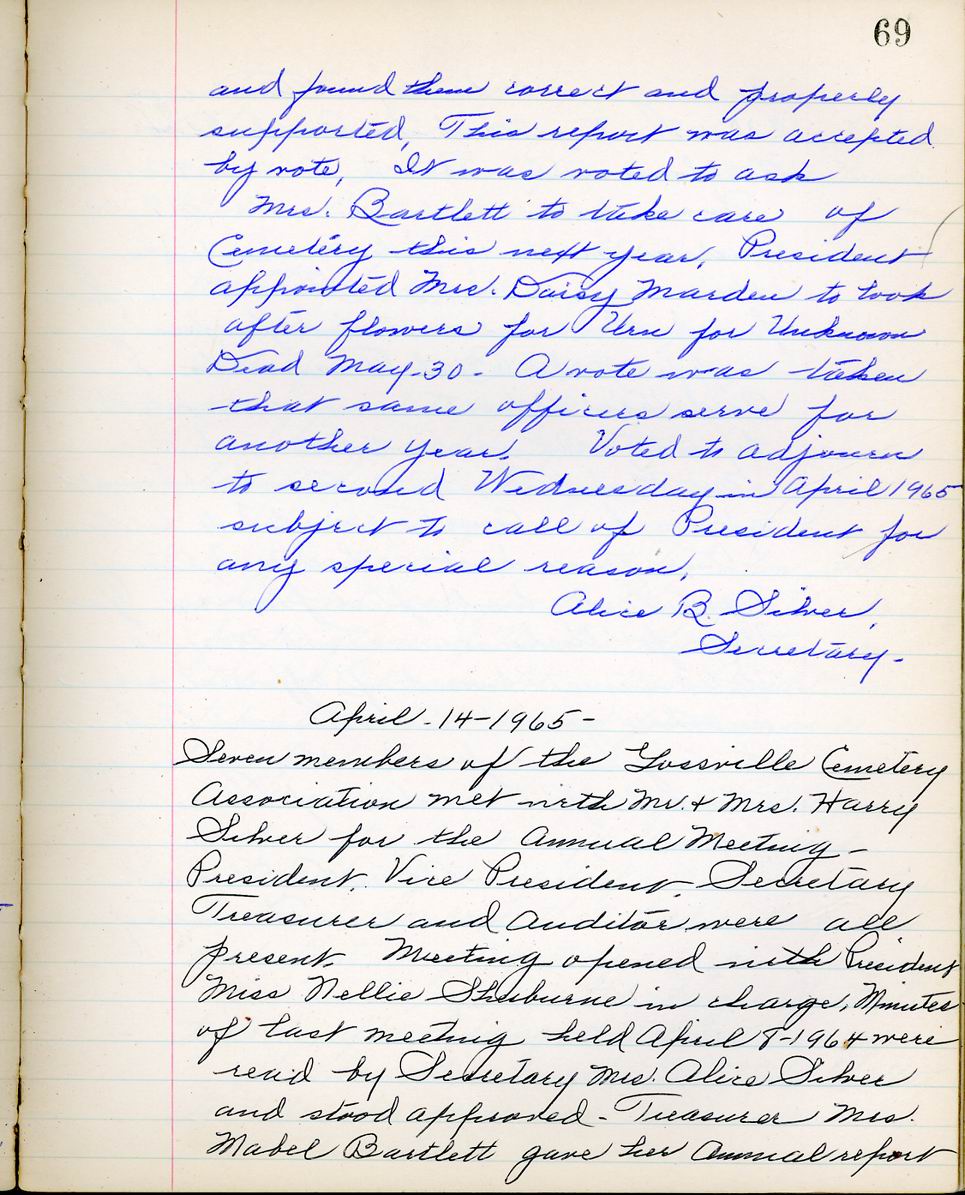 69
and found them correct and properly
supported, This report was accepted
by vote, It was voted to ask
Mrs. Bartlett to take care of
Cemetery this next year. President
appointed Mrs. Daisy Marden to look
after flowers for Urn for Unknown
Dead May-30- A vote was taken
that same officers serve for
another year. Voted to adjourn
to second Wednesday in April 1965
subject to call of President for
any special reason.
Alice B. Silver,
Secretary-
April-14-1965-
Seven members of the Gossville Cemetery
Association met with Mr. & Mrs. Harry
Silver for the Annual Meeting-
President, Vice President, Secretary
Treasurer and Auditor were all
present. Meeting opened with President
Miss Nellie Shuburne in charge, Minutes
of last meeting held April 8-1964 were
read by Secretary Mrs. Alice Silver
and stood approved- Treasurer Mrs.
Mabel Bartlett gave her Annual report